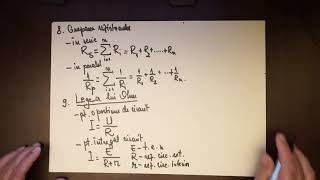 8. Gruparea rezistoarelor
- în serie
R_S = Σ_{i=1}^{n} R_i = R_1 + R_2 + ..... + R_n
- în paralel
1/R_p = Σ_{i=1}^{n} 1/R_i = 1/R_1 + 1/R_2 + ... + 1/R_n
9. Legea lui Ohm
- pt. o porțiune de circuit
I = U/R
- pt. întregul circuit
I = E/(R+r)
E - t.e.m
R - rez. circ. ext.
r - rez. circ. interior